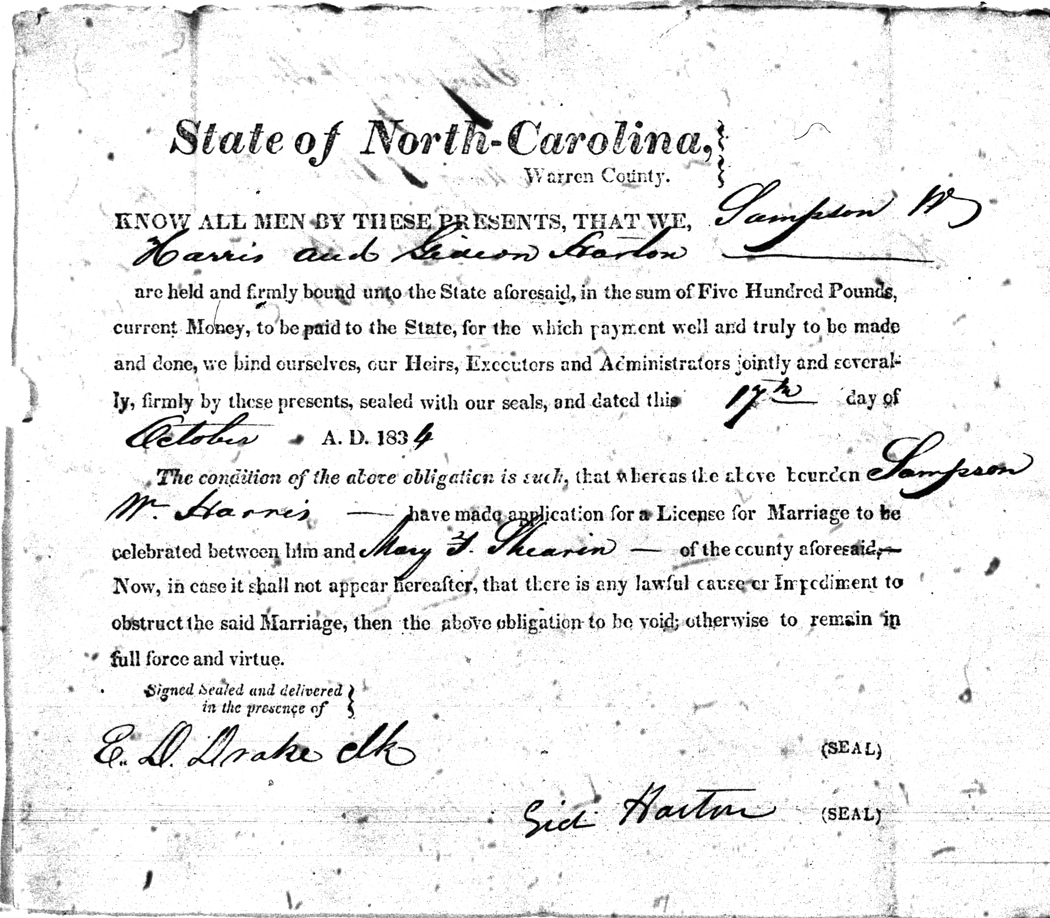 State of North-Carolina,
Warren County.
KNOW ALL MEN BY THESE PRESENTS, THAT WE, Sampson W
Harris and Gideon Harton
are held and firmly bound unto the State aforesaid, in the sum of Five Hundred Pounds,
current Money, to be paid to the State, for the which payment well and truly to be made
and done, we bind ourselves, our Heirs, Executors and Administrators jointly and several-
ly, firmly by these presents, sealed with our seals, and dated this 17th day of
October A. D. 1834
The condition of the above obligation is such, that whereas the above bounden Sampson
W. Harris — have made application for a License for Marriage to be
celebrated between him and Mary F. Shearin — of the county aforesaid,—
Now, in case it shall not appear hereafter, that there is any lawful cause or Impediment to
obstruct the said Marriage, then the above obligation to be void; otherwise to remain in
full force and virtue.
Signed Sealed and delivered
in the presence of
E. D. Drake clk (SEAL)
Gid Harton (SEAL)